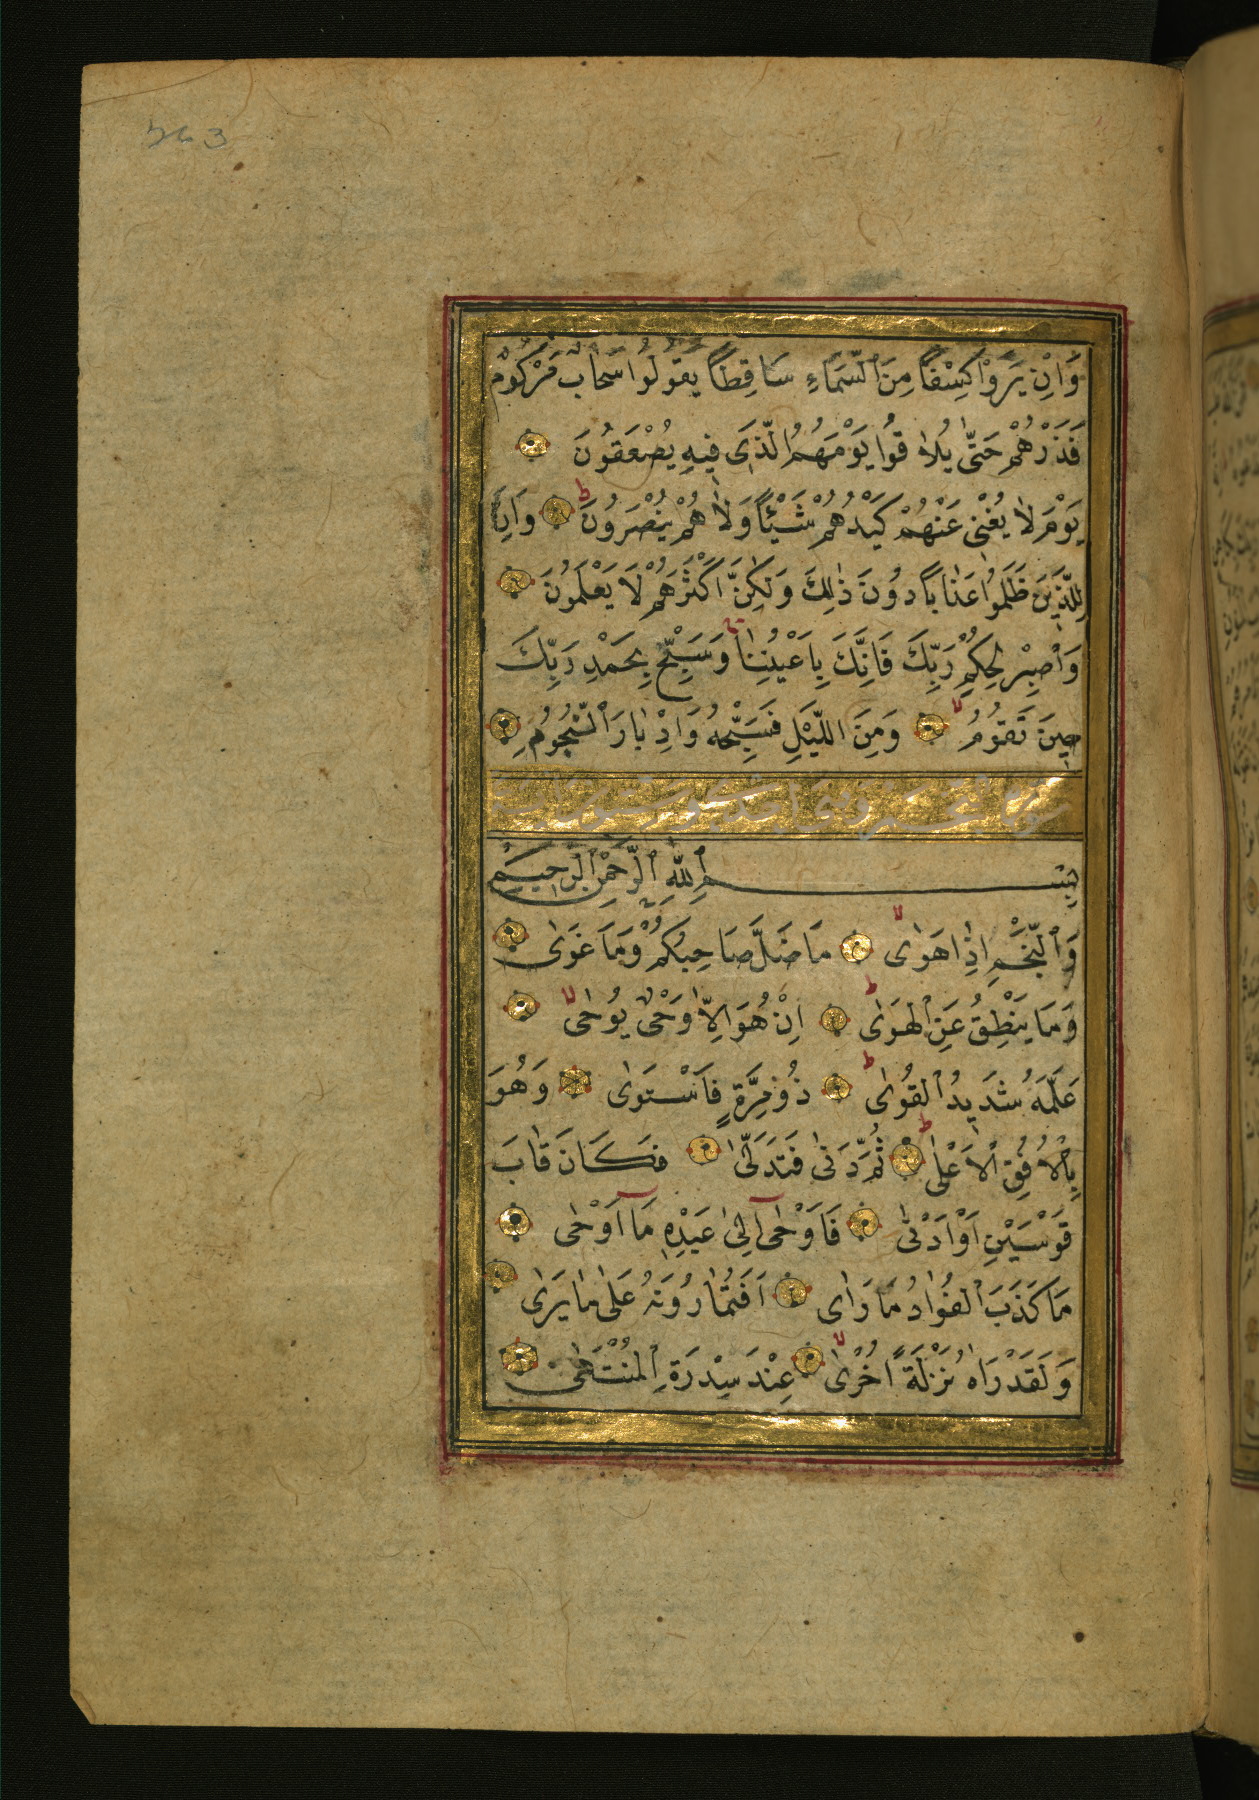 وَاِنْ يَرَوْا كِسْفًا مِنَ ٱلسَّمَاءِ سَاقِطًا يَقُولُوا سَحَابٌ مَرْكُومٌ
فَذَرْهُمْ حَتّٰى يُلَاقُوا يَوْمَهُمُ الَّذٖى فٖيهِ يُصْعَقُونَ
يَوْمَ لَا يُغْنٖى عَنْهُمْ كَيْدُهُمْ شَيْئًا وَلَا هُمْ يُنْصَرُونَ ط وَاِنَّ
لِلَّذٖينَ ظَلَمُوا عَذَابًا دُونَ ذٰلِكَ وَلٰكِنَّ اَكْثَرَهُمْ لَا يَعْلَمُونَ
وَاصْبِرْ لِحُكْمِ رَبِّكَ فَاِنَّكَ بِاَعْيُنِنَا وَسَبِّحْ بِحَمْدِ رَبِّكَ
حٖينَ تَقُومُ لا وَمِنَ اللَّيْلِ فَسَبِّحْهُ وَاِدْبَارَ ٱلنُّجُومِ
بِسْمِ ٱللّٰهِ ٱلرَّحْمٰنِ ٱلرَّحٖيمِ
وَٱلنَّجْمِ اِذَا هَوٰى لا مَا ضَلَّ صَاحِبُكُمْ وَمَا غَوٰى
وَمَا يَنْطِقُ عَنِ ٱلْهَوٰى ط اِنْ هُوَ اِلَّا وَحْىٌ يُوحٰى لا
عَلَّمَهُ شَدٖيدُ ٱلْقُوٰى ط ذُو مِرَّةٍ فَاسْتَوٰى وَهُوَ
بِالْاُفُقِ الْاَعْلٰى ط ثُمَّ دَنٰى فَتَدَلّٰى فَكَانَ قَابَ
قَوْسَيْنِ اَوْ اَدْنٰى فَاَوْحٰى اِلٰى عَبْدِهٖ مَا اَوْحٰى
مَا كَذَبَ ٱلْفُؤَادُ مَا رَاٰى اَفَتُمَارُونَهُ عَلٰى مَا يَرٰى
وَلَقَدْ رَاٰهُ نَزْلَةً اُخْرٰى لا عِنْدَ سِدْرَةِ ٱلْمُنْتَهٰى